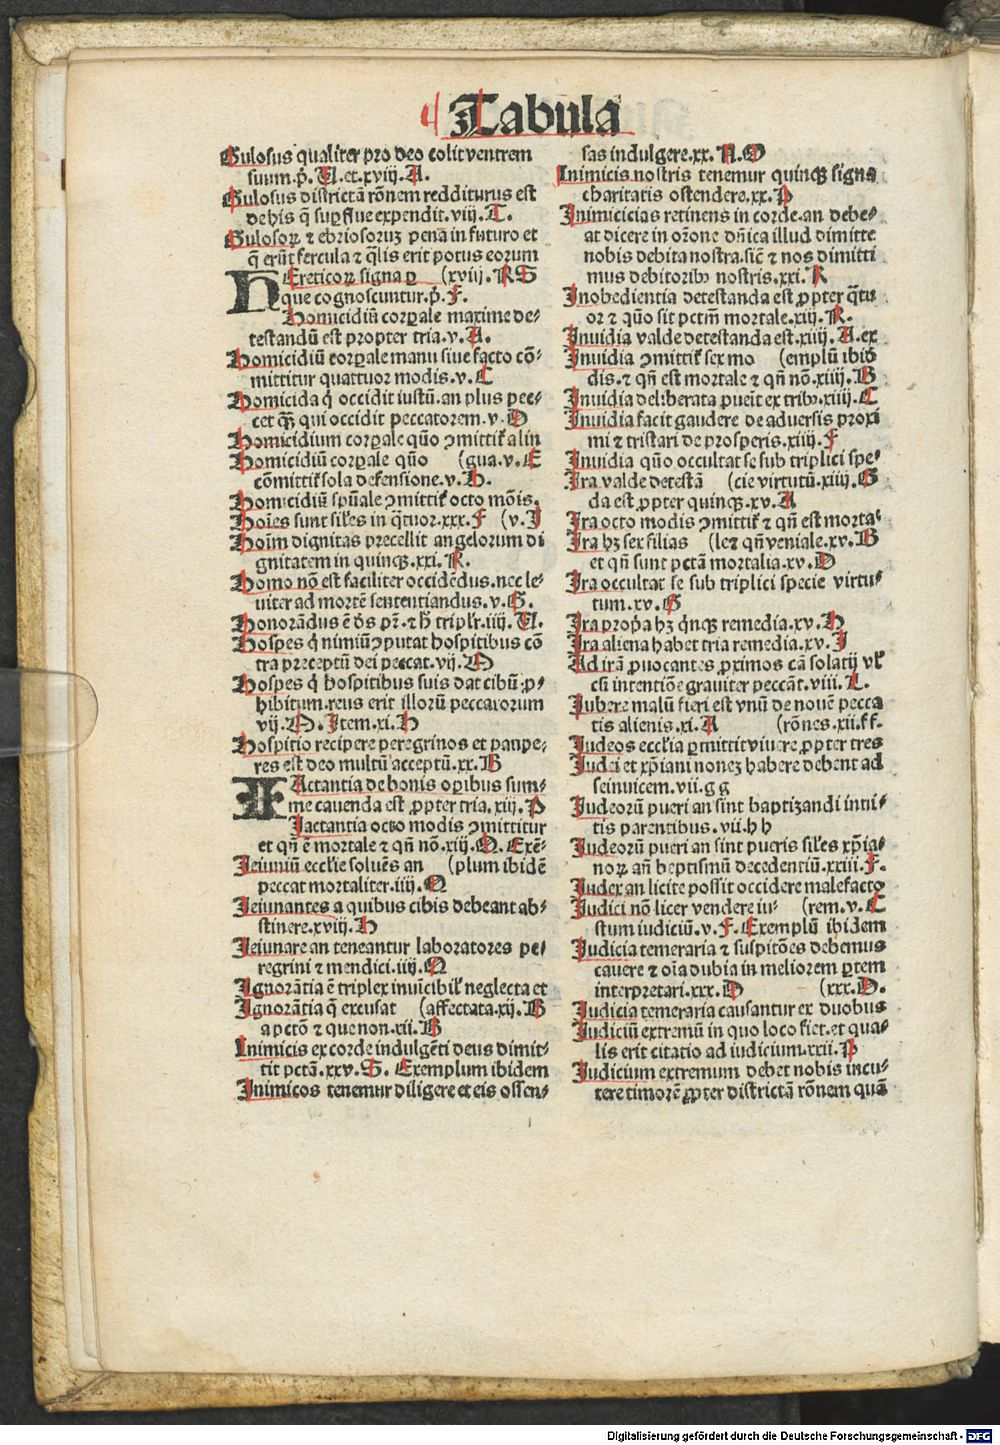 Tabula
Gulosus qualiter pro deo colit ventrem
suum.p̄. U.et.xviij.A.
Gulosus districtā rōnem redditurus est
de his q̄ supflue expendit.viij.T.
Gulosoꝝ ⁊ ebriosoruꝫ pena in futuro et
q̄ erūt fercula ⁊ q̄lis erit potus eorum
HEreticoꝝ signa ꝑ (xviij.R S
que cognoscuntur.p̄.F.
Homicidiū corꝑale maxime de⸗
testandū est propter tria.v.A.
Homicidiū corꝑale manu siue facto cō⸗
mittitur quattuor modis.v.C
Homicida q̇ occidit iustū.an plus pec⸗
cet qꝫ̄ qui occidit peccatorem.v.D
Homicidium corꝑale quō ꝯmittit̃ a lin
Homicidiū corꝑale quō (gua.v.E
cōmittit̃ sola defensione.v.H.
Homicidiū spūale ꝯmittit̃ octo mōis.
Hoīes sunt sil̃es in q̄tuor.xxx.F (v.I
Hoīm dignitas precellit angelorum di
gnitatem in quinqꝫ.xxi.R.
Homo nō est faciliter occidēdus.nec le⸗
uiter ad mortē sententiandus.v.G.
Honorādus ē dꝰs pr̄.⁊ h̄ tripl̃r.iiij.U.
Hospes q̇ nimiū ꝯputat hospitibus cō
tra preceptū dei peccat.vij.M
Hospes q̇ hospitibus suis dat cibū ꝓ⸗
hibitum.reus erit illorū peccatorum
vij.M.Item.xi.H
Hospitio recipere peregrinos et paupe⸗
res est deo multū acceptū.xx.B
IActantia de bonis oꝑibus sum⸗
me cauenda est ꝓpter tria.xiij.P
Iactantia octo modis ꝯmittitur
et qn̄ ē mortale ⁊ qn̄ nō.xiij.Q.Exē⸗
Ieiuniū eccl̃ie soluēs an (plum ibidē
peccat mortaliter.iiij.Q
Ieiunantes a quibus cibis debeant ab⸗
stinere.xviij.H
Ieiunare an teneantur laboratores pe⸗
regrini ⁊ mendici.iiij.Q
Ignorātia ē triplex inuicibil̃ neglecta et
Ignorātia q̄ excusat (affectata.xij.B
a pctō ⁊ que non.xii.B
Inimicis ex corde indulgēti deus dimit⸗
tit pctā.xxv.S. Exemplum ibidem
Inimicos tenemur diligere et eis offen⸗
sas indulgere.xx.N.O
Inimicis nostris tenemur quinqꝫ signa
charitatis ostendere.xx.P
Inimicicias retinens in corde.an debe⸗
at dicere in orōne dn̄ica illud dimitte
nobis debita nostra.sic̄ ⁊ nos dimitti
mus debitoribꝰ nostris.xxi.R
Inobedientia detestanda est ꝓpter q̄tu
or ⁊ quō sit pctm̄ mortale.xij.R.
Inuidia valde detestanda est.xiiij.A.ex
Inuidia ꝯmittit̃ sex mo (emplū ibid̄
dis.⁊ qn̄ est mortale ⁊ qn̄ nō.xiiij.B
Inuidia deliberata ꝓueit ex tribꝰ.xiiij.C
Inuidia facit gaudere de aduersis proxi
mi ⁊ tristari de prosperis.xiiij.F
Inuidia quō occultat se sub triplici spe⸗
Ira valde detestā (cie virtutū.xiiij.G
da est ꝓpter quinqꝫ.xv.A
Ira octo modis ꝯmittit̃ ⁊ qn̄ est morta⸗
Ira hꝫ sex filias (le⁊ qn̄ veniale.xv.B
et qn̄ sunt pctā mortalia.xv.D
Ira occultat se sub triplici specie virtu⸗
tum.xv.G
Ira prop̄a hꝫ q̇nqꝫ remedia.xv.H
Ira aliena habet tria remedia.xv.I
Ad irā ꝓuocantes ꝓximos cā solatij vl̃
cū intentiōe grauiter peccāt.viii.L.
Iubere malū fieri est vnū de nouē pecca
tis alienis.xi.A (rōnes.xii.ff.
Iudeos eccl̃ia ꝑmittit viuere ꝓpter tres
Iudei et xp̄iani noneꝫ habere debent ad
seinuicem.vii.g g
Iudeorū pueri an sint baptizandi inui⸗
tis parentibus.vii.h h
Iudeorū pueri an sint pueris sil̃es xp̄ia⸗
noꝝ an̄ baptismū decedentiū.xxiii.F.
Iudex an licite possit occidere malefacto
Iudici nō licet vendere iu⸗ (rem.v.C
stum iudiciū.v.F.Exemplū ibidem
Iudicia temeraria ⁊ suspitōes debemus
cauere ⁊ oīa dubia in meliorem ꝑtem
interpretari.xxx.D (xxx.D.
Iudicia temeraria causantur ex duobus
Iudiciū extremū in quo loco fiet.et qua⸗
lis erit citatio ad iudicium.xxii.P
Iudicium extremum debet nobis incu⸗
tere timorē ꝓpter districtā rōnem quā
Digitalisierung gefördert durch die Deutsche Forschungsgemeinschaft - DFG